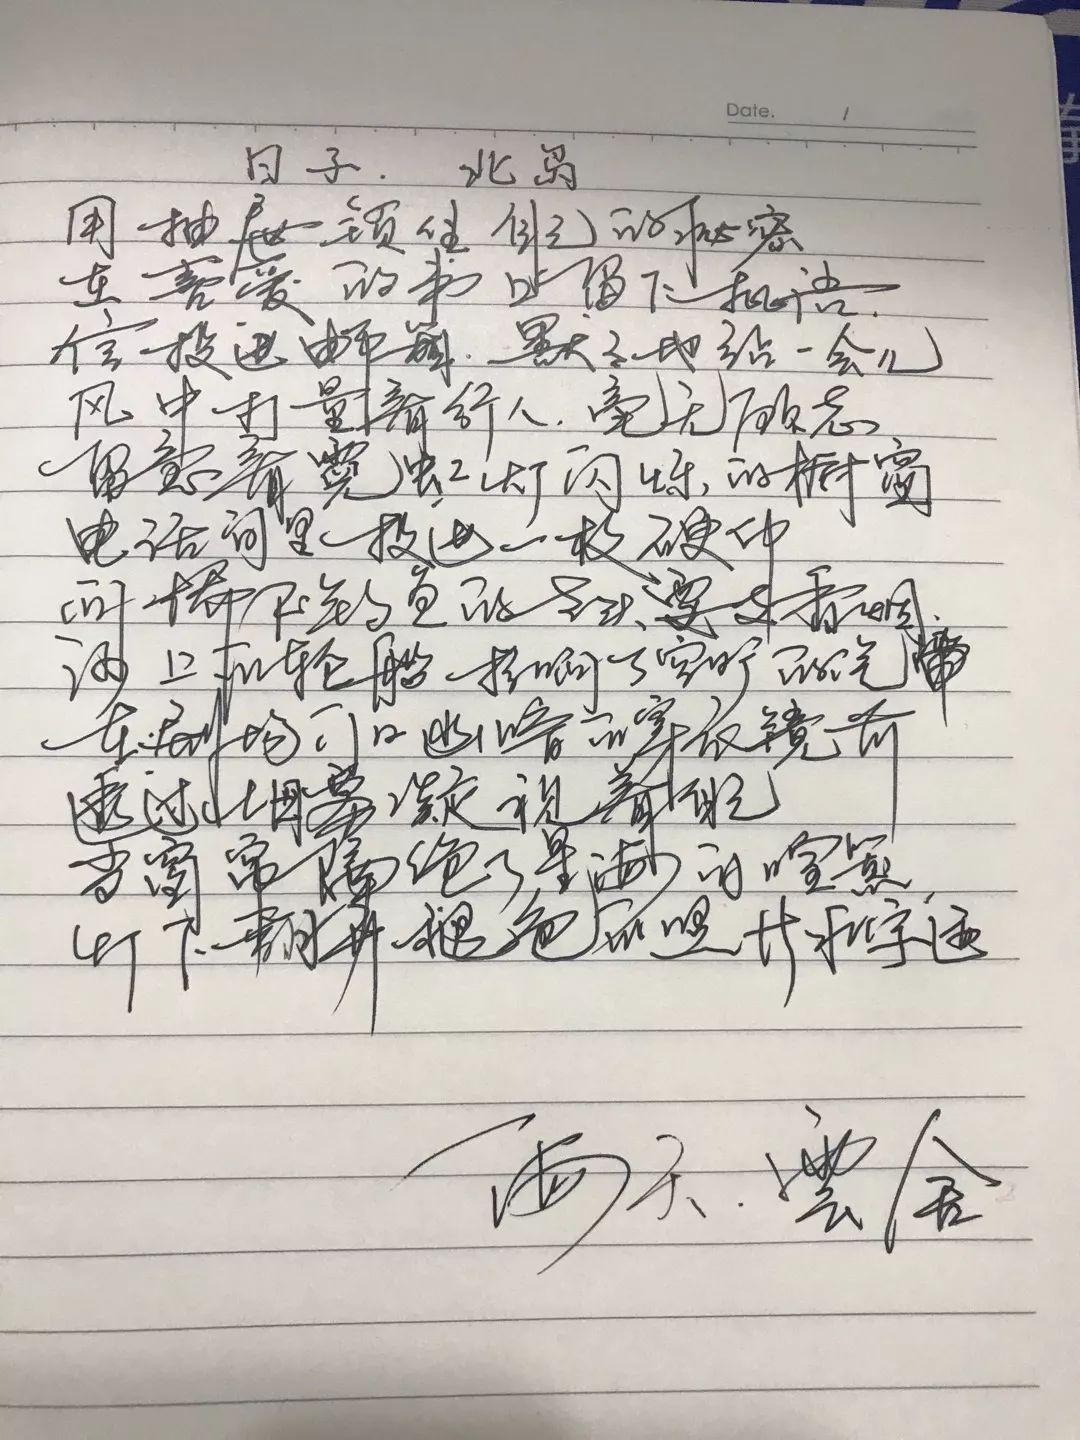 Date. /
日子. 北岛
用抽屉锁住自己的秘密
在喜爱的书上留下批语.
信投进邮箱.默默地站一会儿
风中打量着行人.毫无顾忌
留意着霓虹灯闪烁的橱窗
电话间里投进一枚硬币
问桥下钓鱼的老头要支香烟.
河上的轮船拉响了空旷的汽笛
在剧场门口幽暗的穿衣镜前
透过烟雾凝视着自己
当窗帘隔绝了星海的喧嚣
灯下翻开褪色的照片和字迹
海天.雲舍